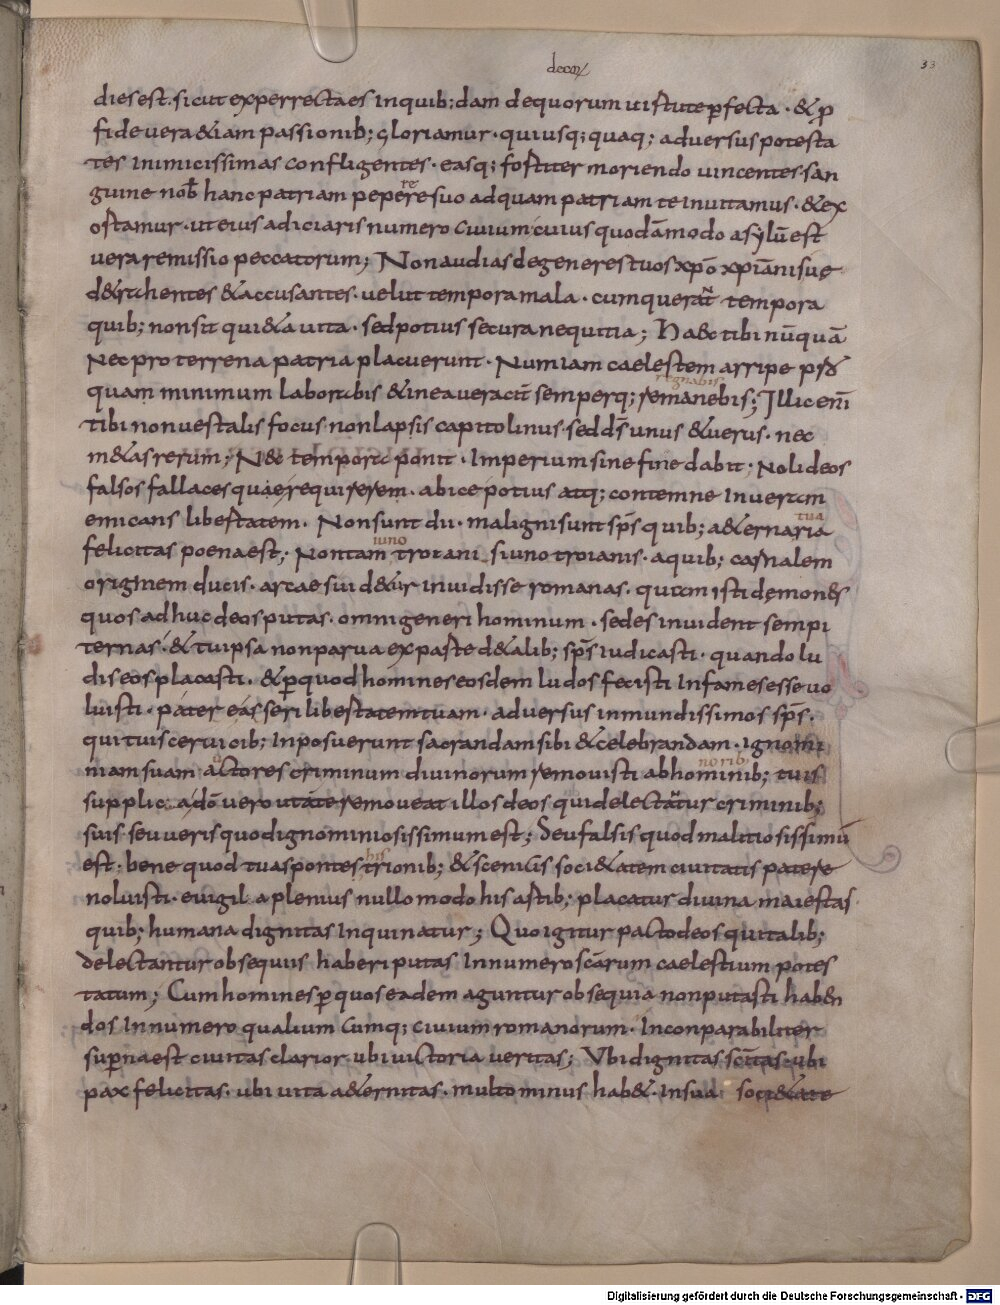 33
dies est. sicut experrecta es in quib; dam de quorum uirtute ꝑfecta. & ꝓ
fide uera &iam passionib; gloriamur. qui usq; quaq; aduersus potesta
tes inimicissimas confligentes. easq; fortiter moriendo uincentes san
guine nob̄ hanc patriam peperere suo ad quam patriam te inuitamus. & ex
ortamur. ut eius adiciaris numero ciuium cuius quodā modo asylū est
uera remissio peccatorum; Non audias degeneres tuos xp̄o xp̄ianisuę
d&rahentes & accusantes. uelut tempora mala. cum querat tempora
quib; non sit qui&a uita. sed potius secura nequitia; Haec tibi nūquā
nec pro terrena patria placuerunt. Num iam caelestem arripe
regnabis
quam minimum laborabis & in ea ueracit̄ semperq; remanebis; Illic eni
tibi non uestalis focus non lapsis capitolinus. sed ds̄ unus & uerus. nec
m&as rerum; Nec tempora ponit. Imperium sine fine dabit; Noli deos
falsos fallaces quaerere. abice potius atq; contemne in ueram
emicans libertatem. Non sunt dii. maligni sunt sps̄ quib; a&erna
tua
felicitas poena est; Non tam troiani si uno troianis. a quib; carnalem
iuno
originem ducis. arcaes ui d&ur inuidisse romanas. quam isti dęmones
quos adhuc deos putas. omni generi hominum. sedes inuident sempi
ternas. & tu ipsa non parua ex parte d&alib; sps̄ iudicasti. quando lu
dis eos placasti. & ꝑ quod homines eosdem ludos fecisti infames esse uo
luisti. pater eas seri libertatem tuam. aduersus inmundissimos sps̄.
qui tuis ceruicib; inposuerunt sacrandam sibi & celebrandam. ignomi
niam suam actores criminum diuinorum remouisti ab hominib; tuis
norib;
supplic adō uero ut a te remoueat illos deos qui delectātur criminib;
suis. seu ueris quod ignominiosissimum est; Seu falsis quod malitiosissimū
est. bene quod tua sponte strionib; & scenicis soci&atem ciuitatis patere
noluisti. euigila plenius nullo modo his artib; placatur diuina maiestas
quib; humana dignitas inquinatur; Quo igitur pacto deos qui talib;
delectantur obsequiis haberi putas in numero sc̄arum caelestium potes
tatum; Cum homines ꝑ quos eadem aguntur obsequia non putasti haben
dos in numero qualium cumq; ciuium romanorum. Inconparabiliter
supna est ciuitas clarior ubi uictoria ueritas; Vbi dignitas sc̄itas. ubi
pax felicitas. ubi uita a&ernitas. multo minus hab&. In sua soci&ate
Digitalisierung gefördert durch die Deutsche Forschungsgemeinschaft - DFG